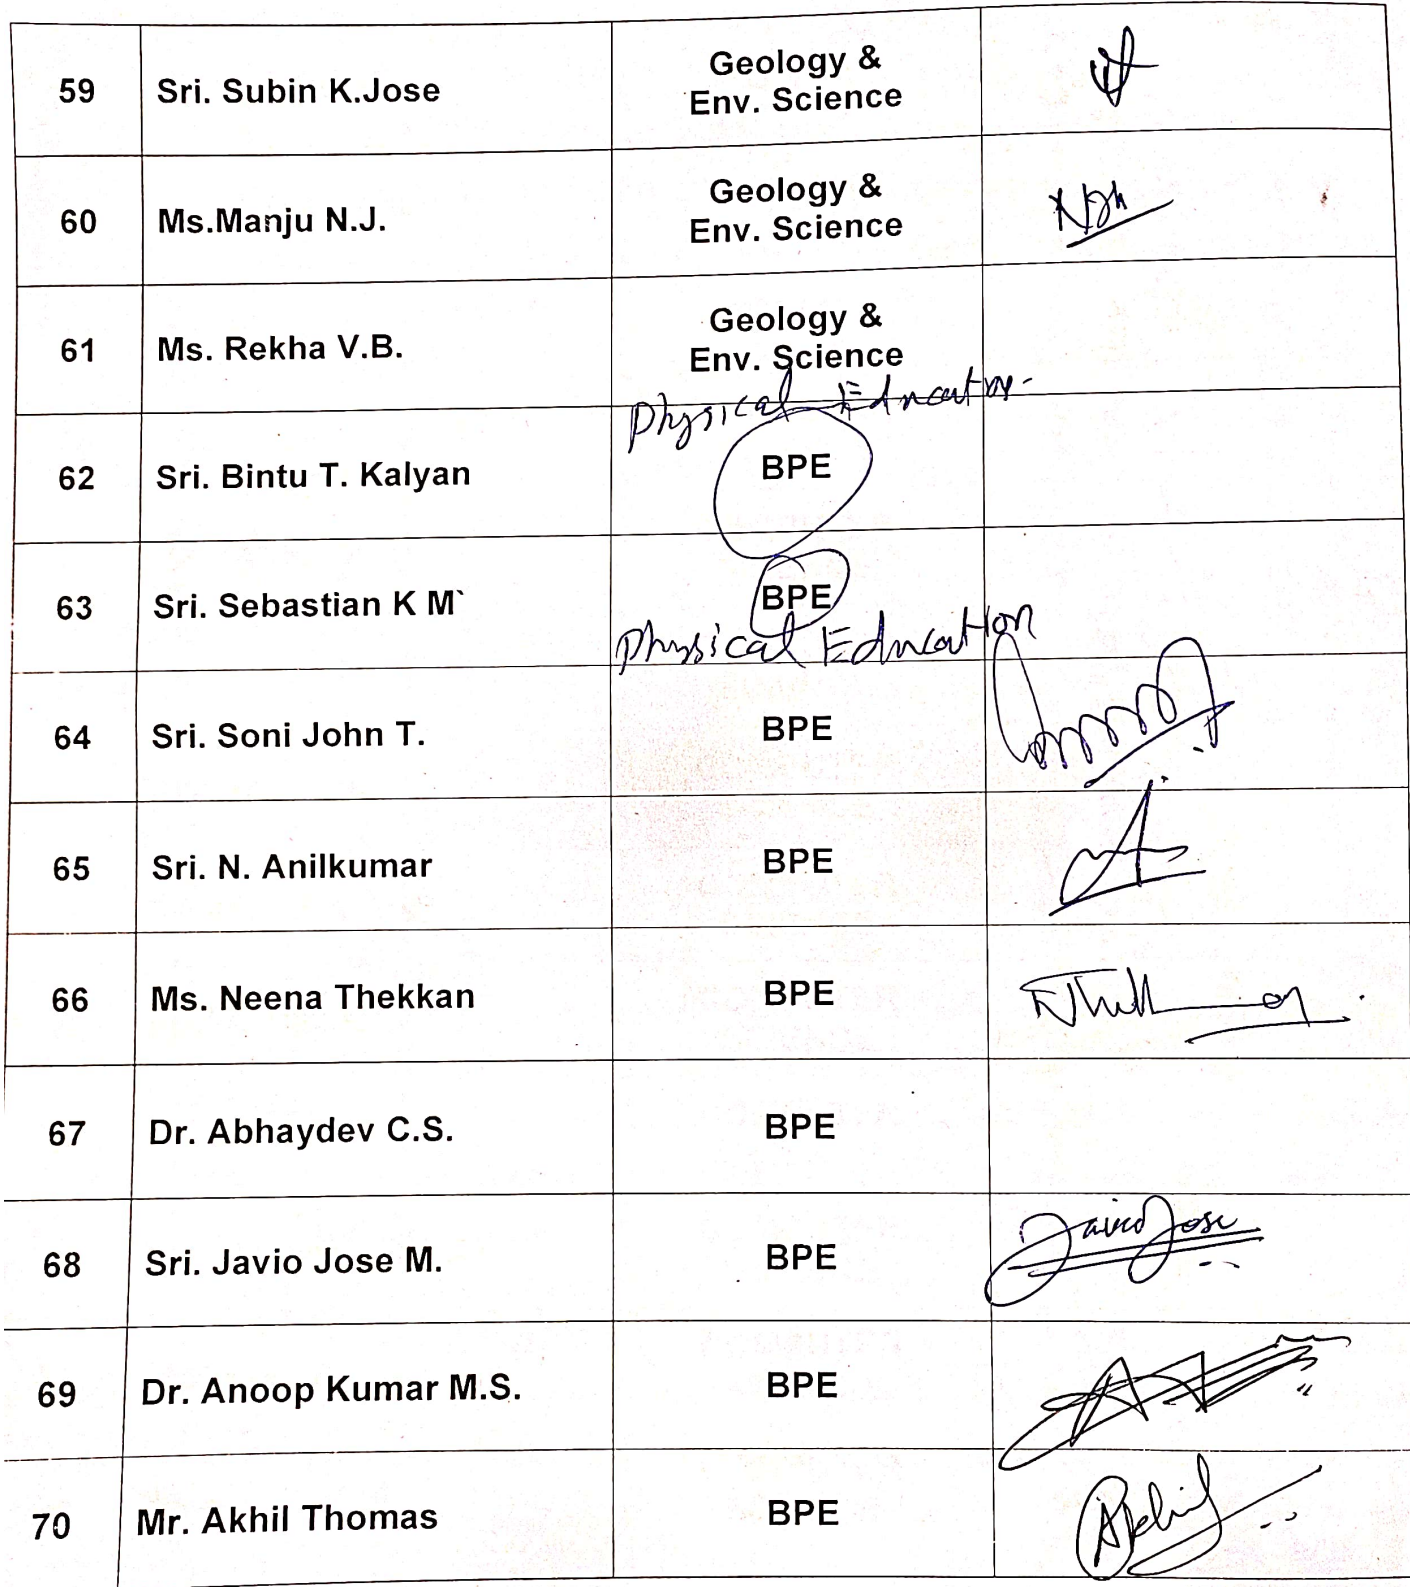 59 Sri. Subin K.Jose Geology &
Env. Science
60 Ms.Manju N.J. Geology &
Env. Science
61 Ms. Rekha V.B. Geology &
Env. Science
Physical Education
62 Sri. Bintu T. Kalyan BPE
63 Sri. Sebastian K M` BPE
Physical Education
64 Sri. Soni John T. BPE
65 Sri. N. Anilkumar BPE
66 Ms. Neena Thekkan BPE
67 Dr. Abhaydev C.S. BPE
68 Sri. Javio Jose M. BPE Javio Jose
69 Dr. Anoop Kumar M.S. BPE
70 Mr. Akhil Thomas BPE Akhil